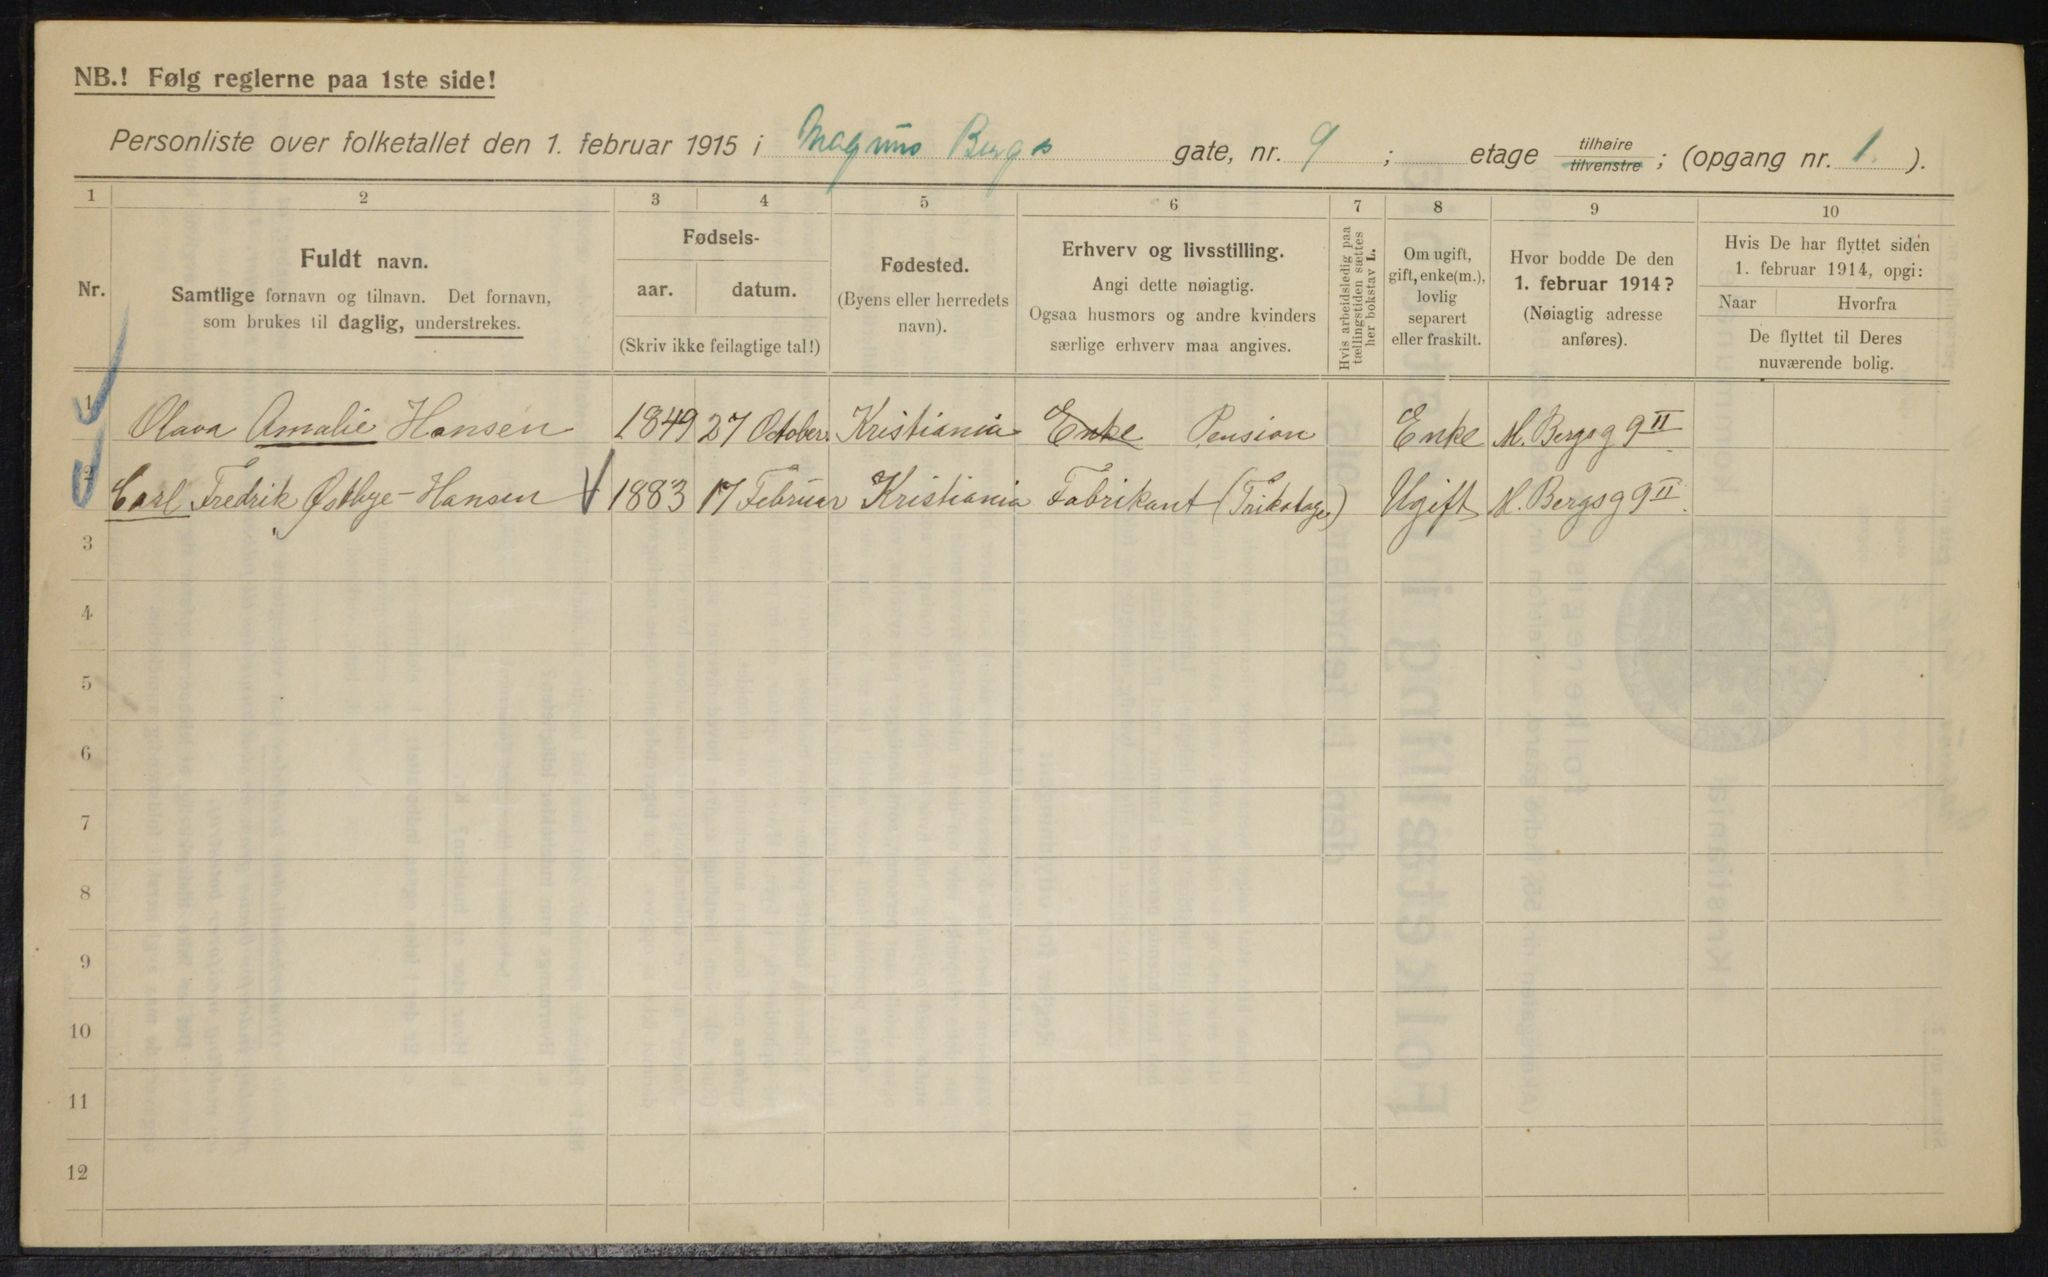 NB.! Følg reglerne paa 1ste side!
Personliste over folketallet den 1. februar 1915 i Magnus Bergs gate, nr. 9 ; etage tilhøire tilvenstre ; (opgang nr. 1. ).
1 2 3 4 5 6 7 8 9 10
Nr.
Fuldt navn.
Samtlige fornavn og tilnavn. Det fornavn,
som brukes til daglig, understrekes.
Fødsels-
aar. datum.
(Skriv ikke feilagtige tal!)
Fødested.
(Byens eller herredets
navn).
Erhverv og livsstilling.
Angi dette nøiagtig.
Ogsaa husmors og andre kvinders
særlige erhverv maa angives.
Hvis arbeidsledig paa
tællingstiden sættes
her bokstav L.
Om ugift,
gift, enke(m.),
lovlig
separert
eller fraskilt.
Hvor bodde De den
1. februar 1914?
(Nøiagtig adresse
anføres).
Hvis De har flyttet siden
1. februar 1914, opgi:
Naar Hvorfra
De flyttet til Deres
nuværende bolig.
1 Olava Amalie Hansen 1849 27 October Kristiania Enke Pension Enke M. Bergsg 9 II
2 Carl Fredrik Østbye-Hansen 1883 17 Februar Kristiania Fabrikant (Trikotage) Ugift M. Bergsg 9 II
3
4
5
6
7
8
9
10
11
12